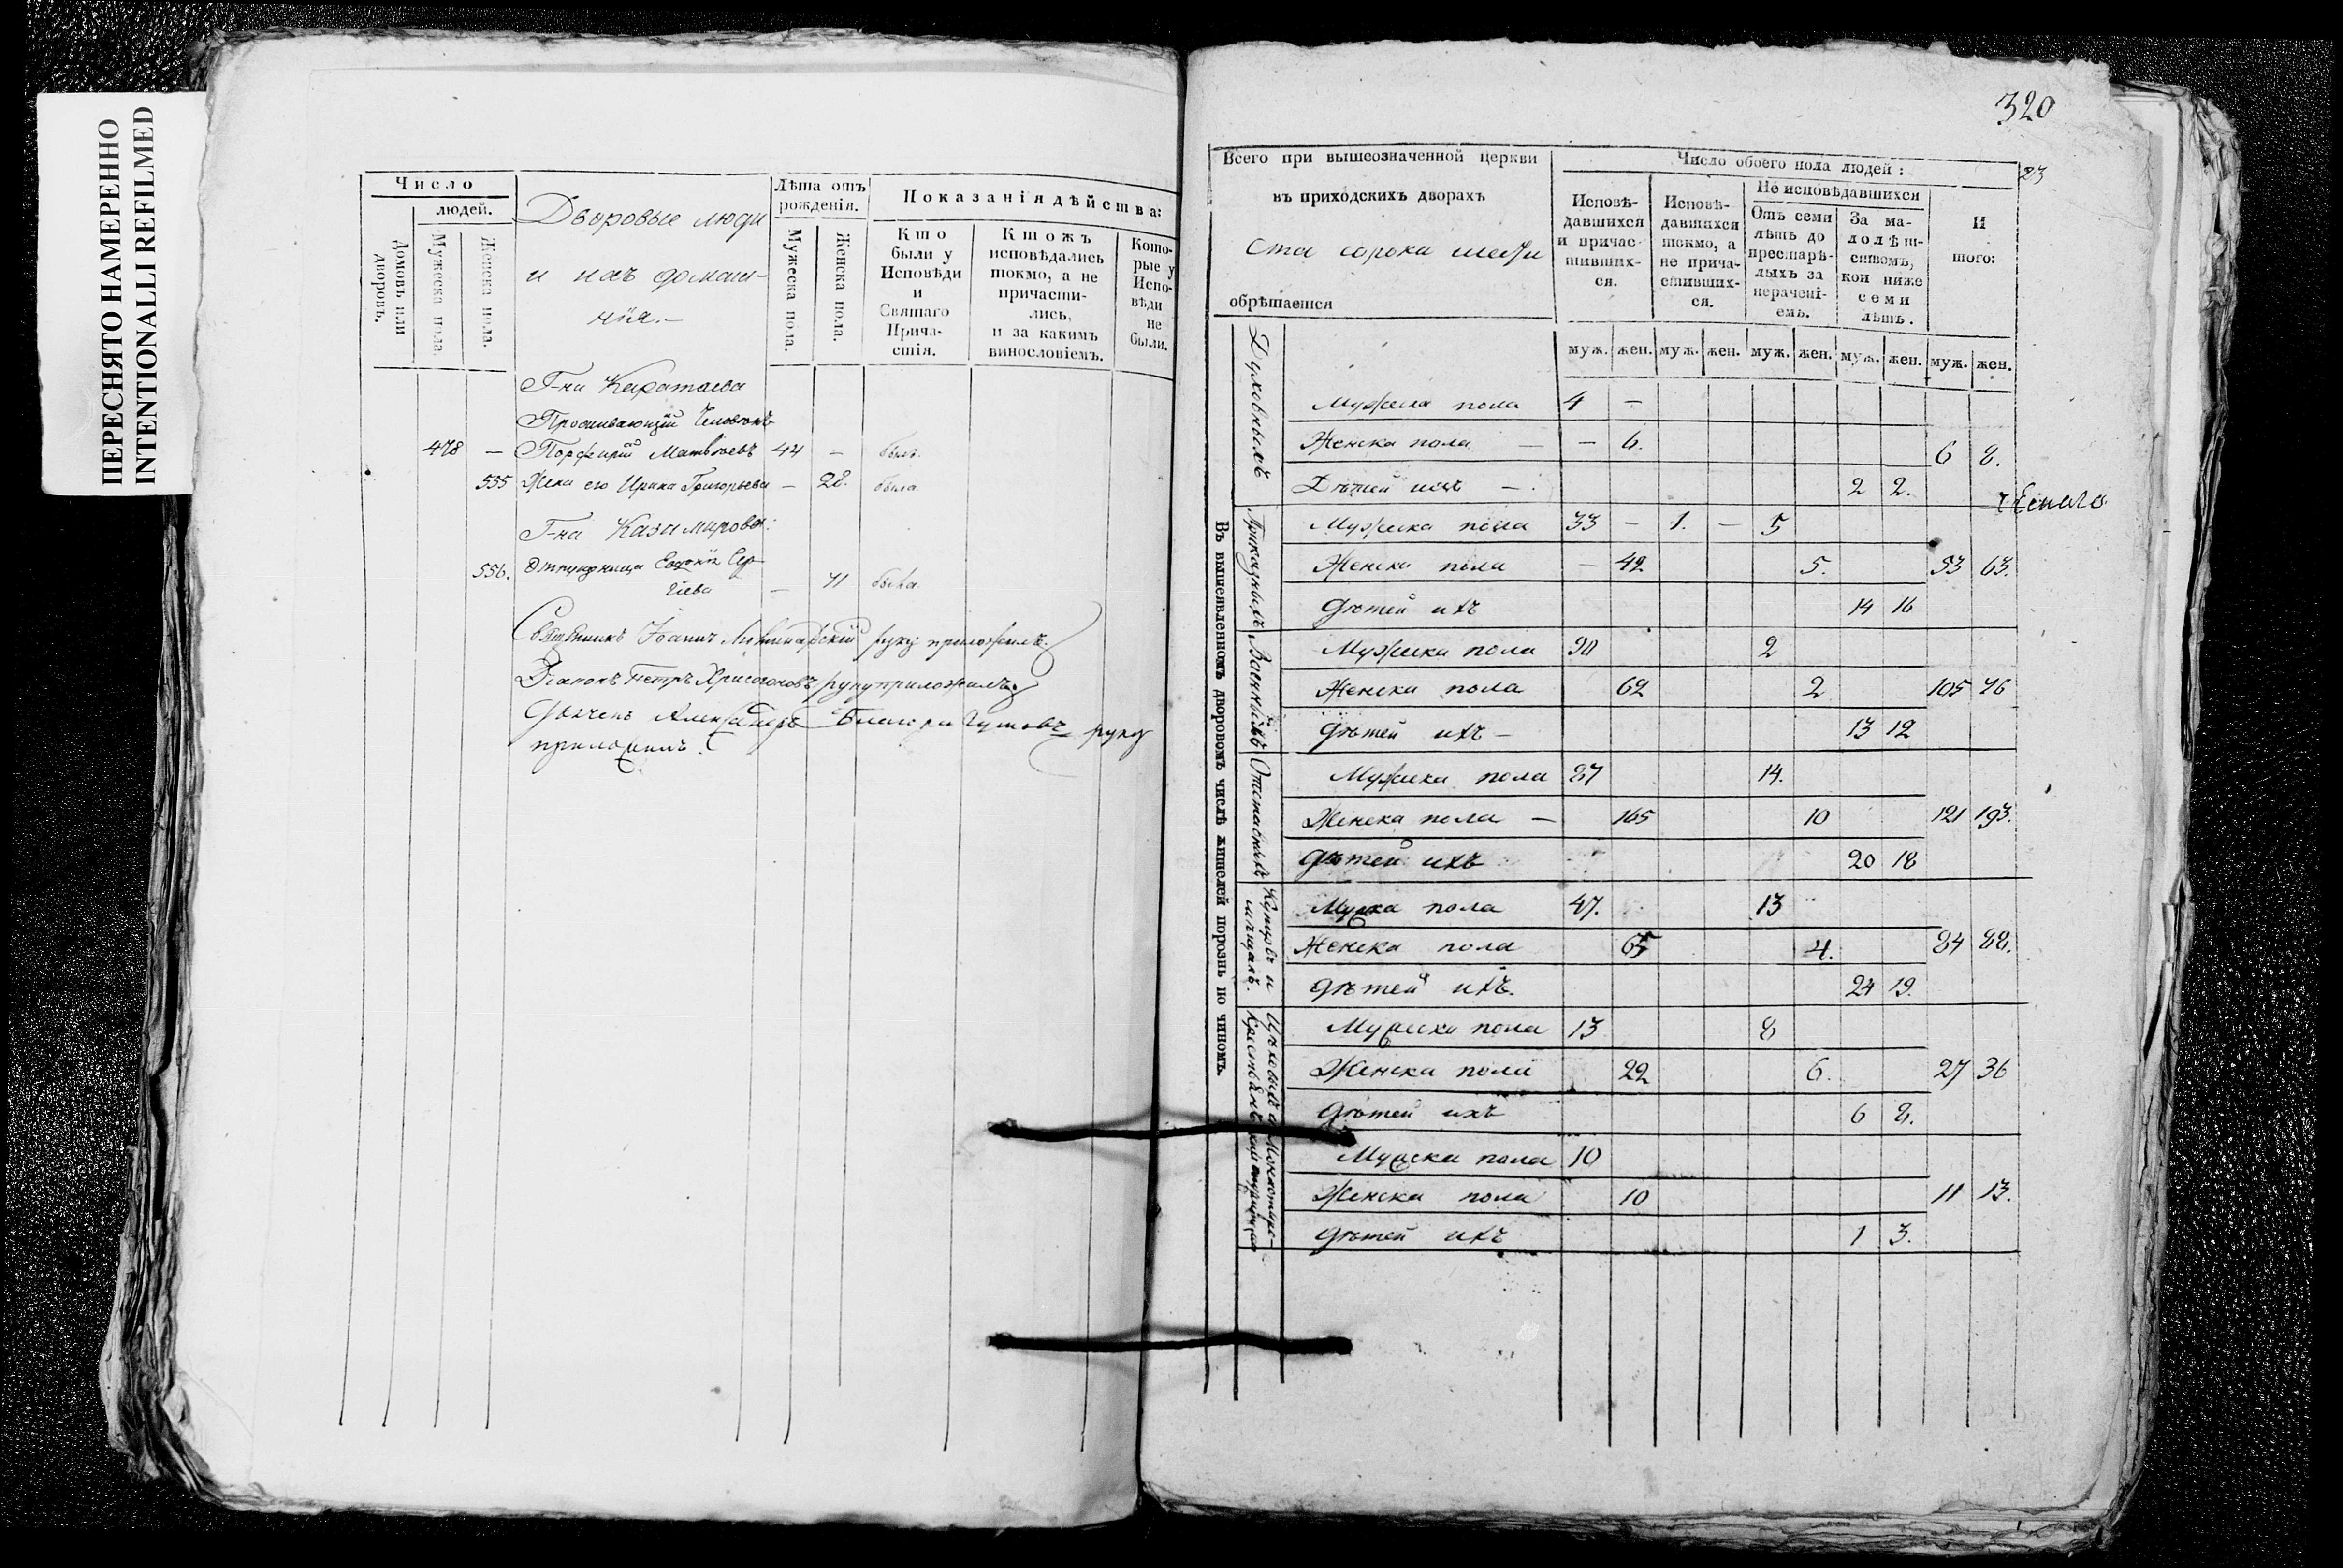 ПЕРЕСНЯТО НАМЕРЕННО
INTENTIONALLI REFILMED
Число
людей.
Домовъ или дворовъ.
Мужеска пола.
Женска пола.
Дворовые люди
и ихъ домаш-
нія.
Лѣта отъ рожденія.
Мужеска пола.
Женска пола.
Показанія дѣйства:
Кто были у Исповѣди и Святаго Причастія.
Ктожъ исповѣдались токмо, а не причастились, и за какимъ винословіемъ.
Которые у Исповѣди не были.
Г-на Каратаева
Проживающій Человѣкъ
478 — Порфирій Матвѣевъ 44 — былъ.
555 Жена его Ирина Григорьева — 28. была.
Г-на Казимирова:
556. Сер-
гѣева — 71 была.
Священникъ Іоаннъ руку приложилъ.
Діаконъ Петръ Хрисогоновъ руку приложилъ
Дьячекъ Александръ руку
приложилъ.
320
23
Всего при вышеозначенной церкви
въ приходскихъ дворахъ
ста сорока шести
обрѣтается
Число обоего пола людей:
Исповѣдавшихся и причастившихся.
Исповѣдавшихся токмо, а не причастившихся.
Не исповѣдавшихся
Отъ семи лѣтъ до престарѣлыхъ за нерачені-емъ.
За малолѣтствомъ, кои ниже семи лѣтъ.
И того:
муж. жен. муж. жен. муж. жен. муж. жен. муж. жен.
Въ вышеявленномъ дворовомъ числѣ жителей порознь по чиномъ.
Духовныхъ
Мужеска пола 4 —
Женска пола — — 6. 6 8.
Дѣтей ихъ — 2 2.
Приказныхъ
Мужеска пола 33 — 1. — 5
Женска пола — 42 5. 53 63.
Дѣтей ихъ 14 16
Военныхъ
Мужеска пола 90 2
Женска пола 62 2 105 76
Дѣтей ихъ — 13 12
Отставныхъ
Мужеска пола 87 14.
Женска пола — 165 10 121 193.
Дѣтей ихъ 20 18
Купцовъ и мѣщанъ.
Мужска пола 47. 13
Женска пола 65 4. 84 88.
Дѣтей ихъ. 24 19.
Цѣховыхъ
Мужеска пола 13 8
Женска пола 22 6. 27 36
Дѣтей ихъ 6 8.
Мужеска пола 10
Женска пола 10 11 13.
Дѣтей ихъ 1 3.